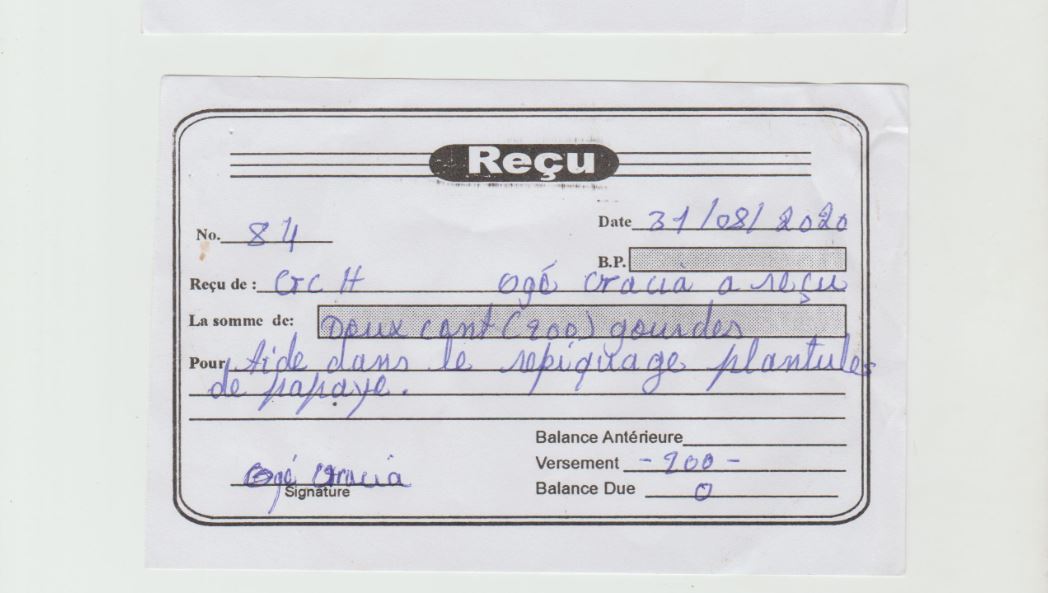 Reçu
No. 84
Date 31/08/2020
B.P.
Reçu de : GCH Ogé Gracia a reçu
La somme de: Deux cent (200) gourdes
Pour Aide dans le repiquage plantules
de papaye.
Balance Antérieure
Versement - 200 -
Balance Due 0
Ogé Gracia
Signature